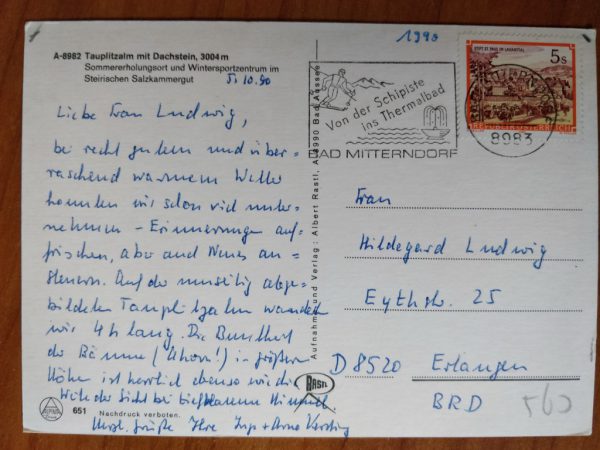 1990
A-8982 Tauplitzalm mit Dachstein, 3004 m
Sommererholungsort und Wintersportzentrum im
Steirischen Salzkammergut
10.90
Liebe Frau Ludwig,
bei recht gutem und über-
raschend warmem Wetter
konnten wir schon viel unter-
nehmen - Erinnerungen auf-
frischen, aber auch Neues an-
steuern. Auf der umseitig abge-
bildeten Tauplitzalm wanderten
wir 4 h lang. Die Buntheit
der Bäume (Ahorn!) in größerer
Höhe ist herrlich ebenso wie die
Weite der Sicht bei tiefblauem Himmel.
Herzl. Grüße Ihre Inge + Arno
651
Nachdruck verboten.
RASTL
Aufnahme und Verlag: Albert Rastl, A-8990 Bad Aussee
Von der Schipiste
ins Thermalbad
BAD MITTERNDORF
8983
STIFT ST. PAUL IM LAVANTTAL
5 S
REPUBLIK ÖSTERREICH
Frau
Hildegard Ludwig
Eythstr. 25
D 8520 Erlangen
BRD